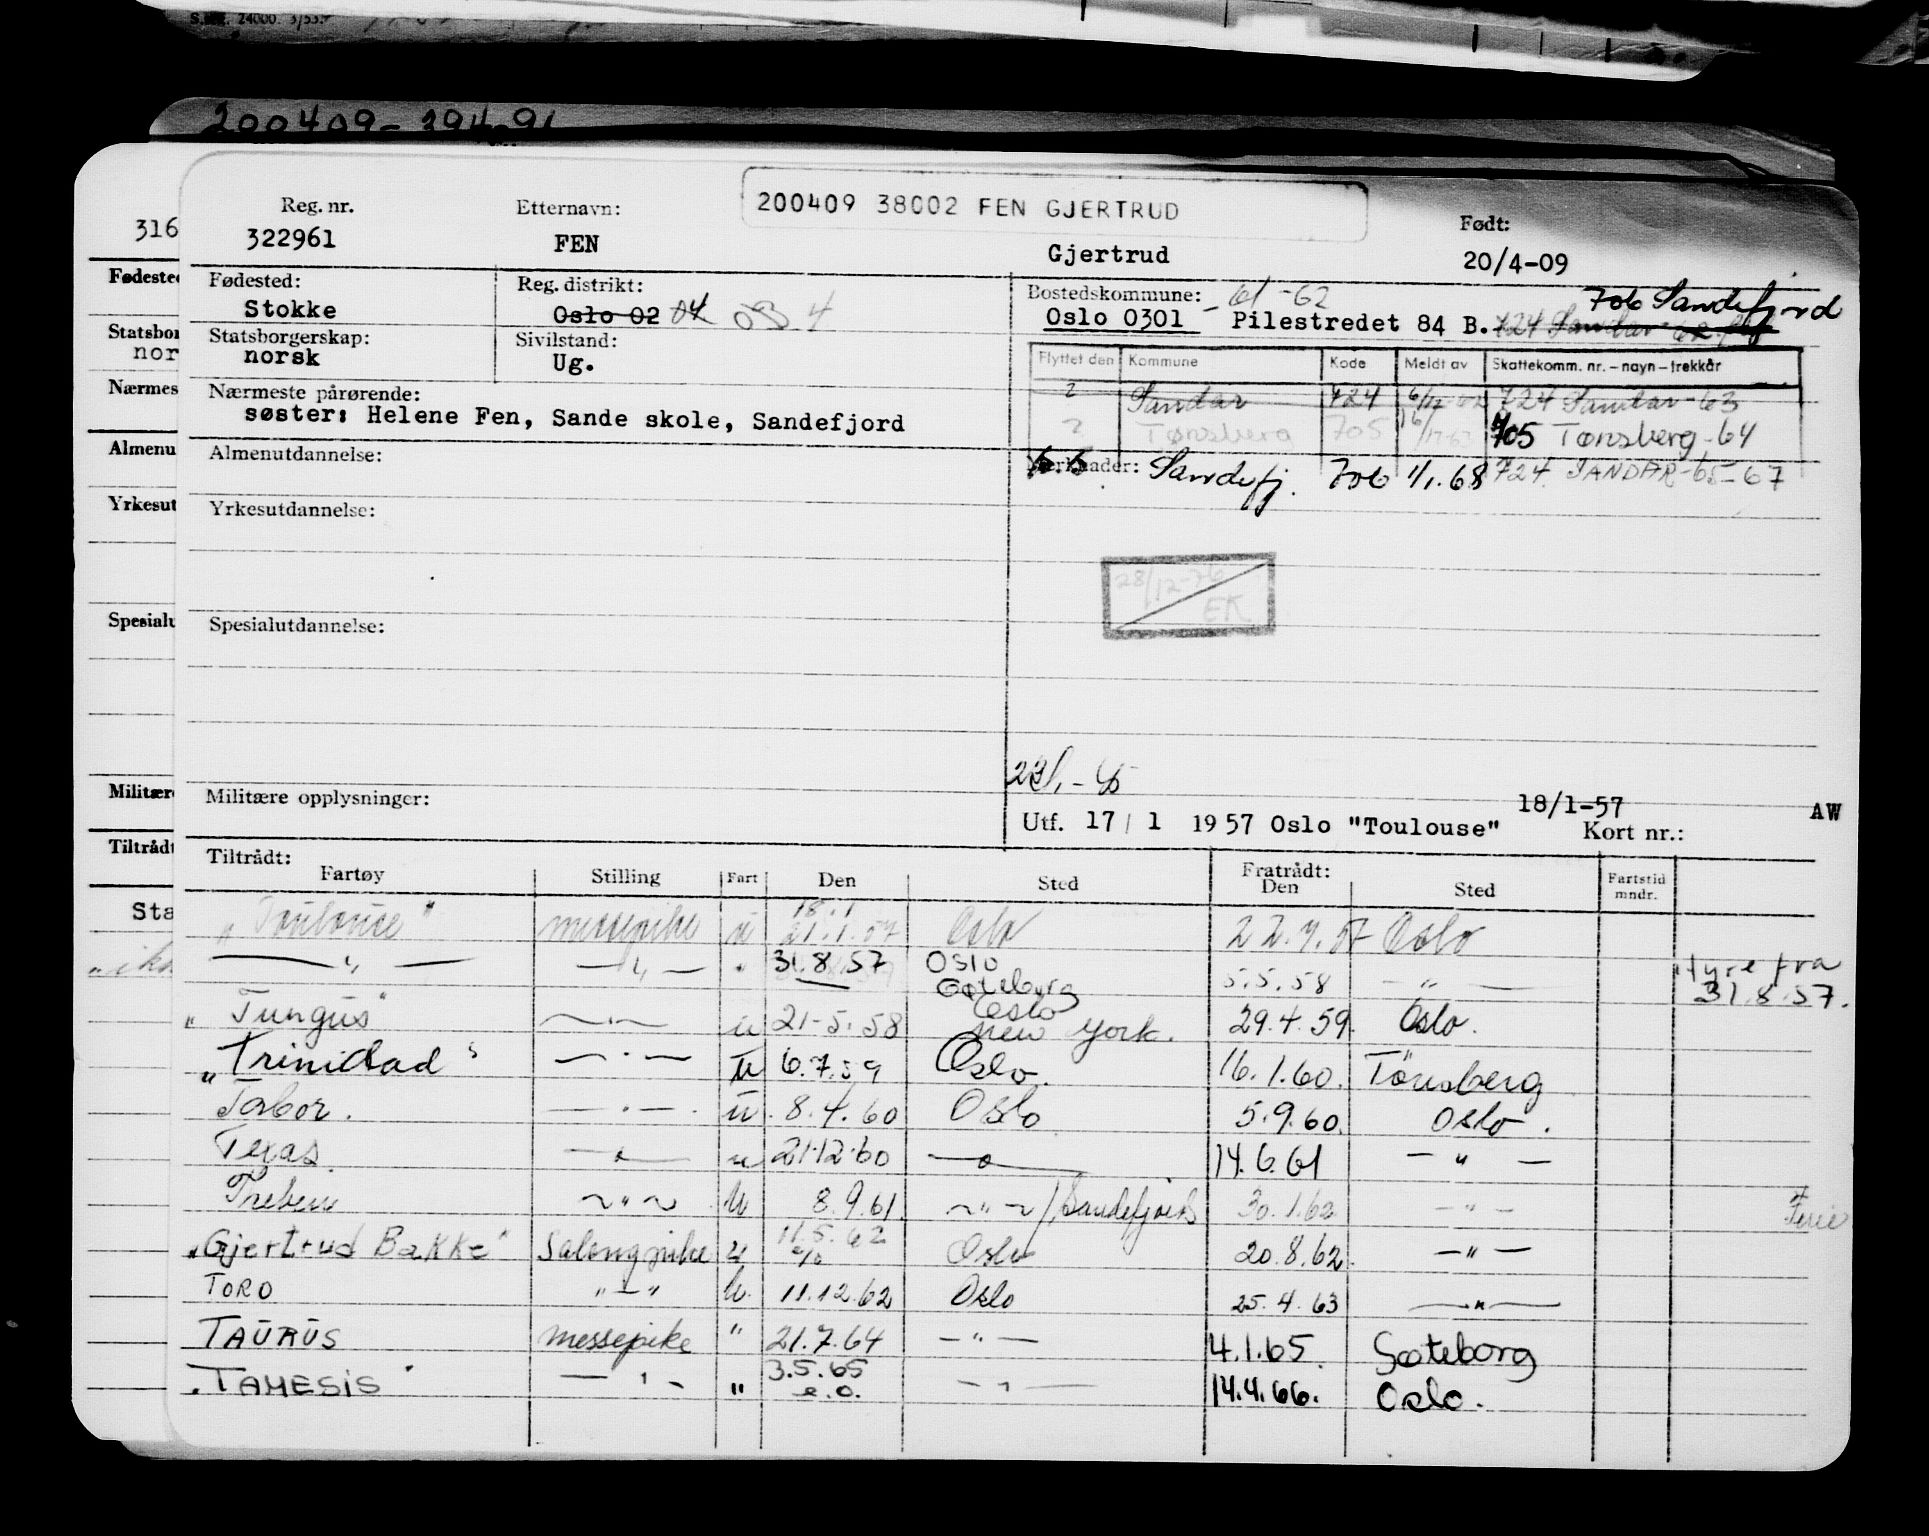 S.M.E. 24000. 3/53.
200409-394-91
200409 38002 FEN GJERTRUD
Reg. nr. Etternavn: Født:
316
322961 FEN Gjertrud 20/4-09
Fødested: Reg. distrikt: Bostedskommune: - 61 -62 706 Sandefjord
Stokke Oslo 02 04 03 4 Oslo 0301 Pilestredet 84 B. 724 Sandar
Statsborgerskap: Sivilstand:
norsk Ug.
Flyttet den Kommune Kode Meldt av Skattekomm. nr. – navn – trekkår
Nærmeste pårørende:
søster: Helene Fen, Sande skole, Sandefjord
2 Sandar 724 724 Sandar-63
2 Tønsberg 705 705 Tønsberg-64
Almenutdannelse:
Sandefj. 706 1/1.68 724 SANDAR-65-67
Yrkesutdannelse:
28/12-76
EK
Spesialutdannelse:
Militære opplysninger:
18/1-57 AW
Utf. 17 / 1 1957 Oslo "Toulouse" Kort nr.:
Tiltrådt: Fratrådt:
Fartøy Stilling Fart Den Sted Den Sted Fartstid mndr.
18.1
"Toulouse" messepike u 21.1.57 Oslo 22.7.57 Oslo
— " — — " — " 31.8.57 Oslo styre fra
Gøteborg 5.5.58 — " — 31.8.57.
Oslo
"Tungus" — " — u 21-5.58 new York. 29.4.59. Oslo.
"Trinidad" — " — u 6.7.59 Oslo. 16.1.60. Tönsberg
Tabor. — " — u. 8.4.60 Oslo 5.9.60. Oslo.
Texas. — " — u 21.12.60 — " — 14.6.61 — " —
u 8.9.61. — " — / Sandefjord 30.1.62 — " — Ferie
11.5.62
"Gjertrud Bakke" Salongpike u % Oslo 20.8.62. — " —
TORO " — " u. 11.12.62 Oslo 25.4.63 — " —
TAURUS messepike " 21.7.64 — " — 4.1.65. Gøteborg
3.5.65
"TAMESIS" — " — " e.o. — " — 14.4.66. Oslo.